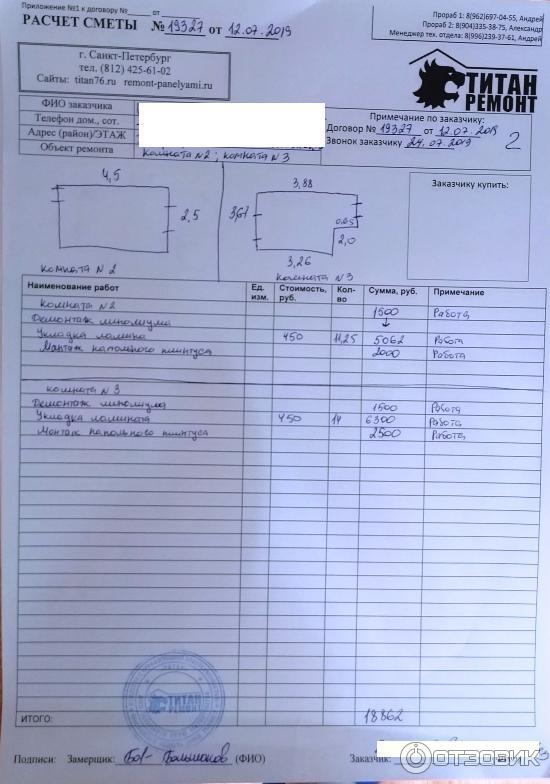 Приложение №1 к договору №______ от ____
РАСЧЕТ СМЕТЫ № 19327 от 12.07.2019
Прораб 1: 8(962)697-04-55, Андрей
Прораб 2: 8(904)335-38-75, Александр
Менеджер тех. отдела: 8(996)239-37-61, Андрей
г. Санкт-Петербург
тел. (812) 425-61-02
Сайты: titan76.ru remont-panelyami.ru
ТИТАН
РЕМОНТ
ФИО заказчика
Телефон дом., сот.
Адрес (район)/ЭТАЖ
Объект ремонта комната N2 ; комната N3
Примечание по заказчику:
Договор № 19327 от 12.07.2019
Звонок заказчику 24.07.2019
2
4,5
2,5
комната N2
3,88
3,67
0.65
2,0
3,26
комната N3
Заказчику купить:
Наименование работ Ед. изм. Стоимость, руб. Кол-во Сумма, руб. Примечание
комната N2 1500 Работа
Демонтаж линолиума
Укладка ламина 450 11,25 5062 Работа
Монтаж напольного плинтуса 2000 Работа
комната N3
Демонтаж линолиума 1500 Работа
Укладка ламината 450 14 6300 Работа
Монтаж напольного плинтуса 2500 Работа
ТИТАН
ИТОГО: 18862
Подписи: Замерщик: Большаков (ФИО) Заказчик:
ОТЗОВИК